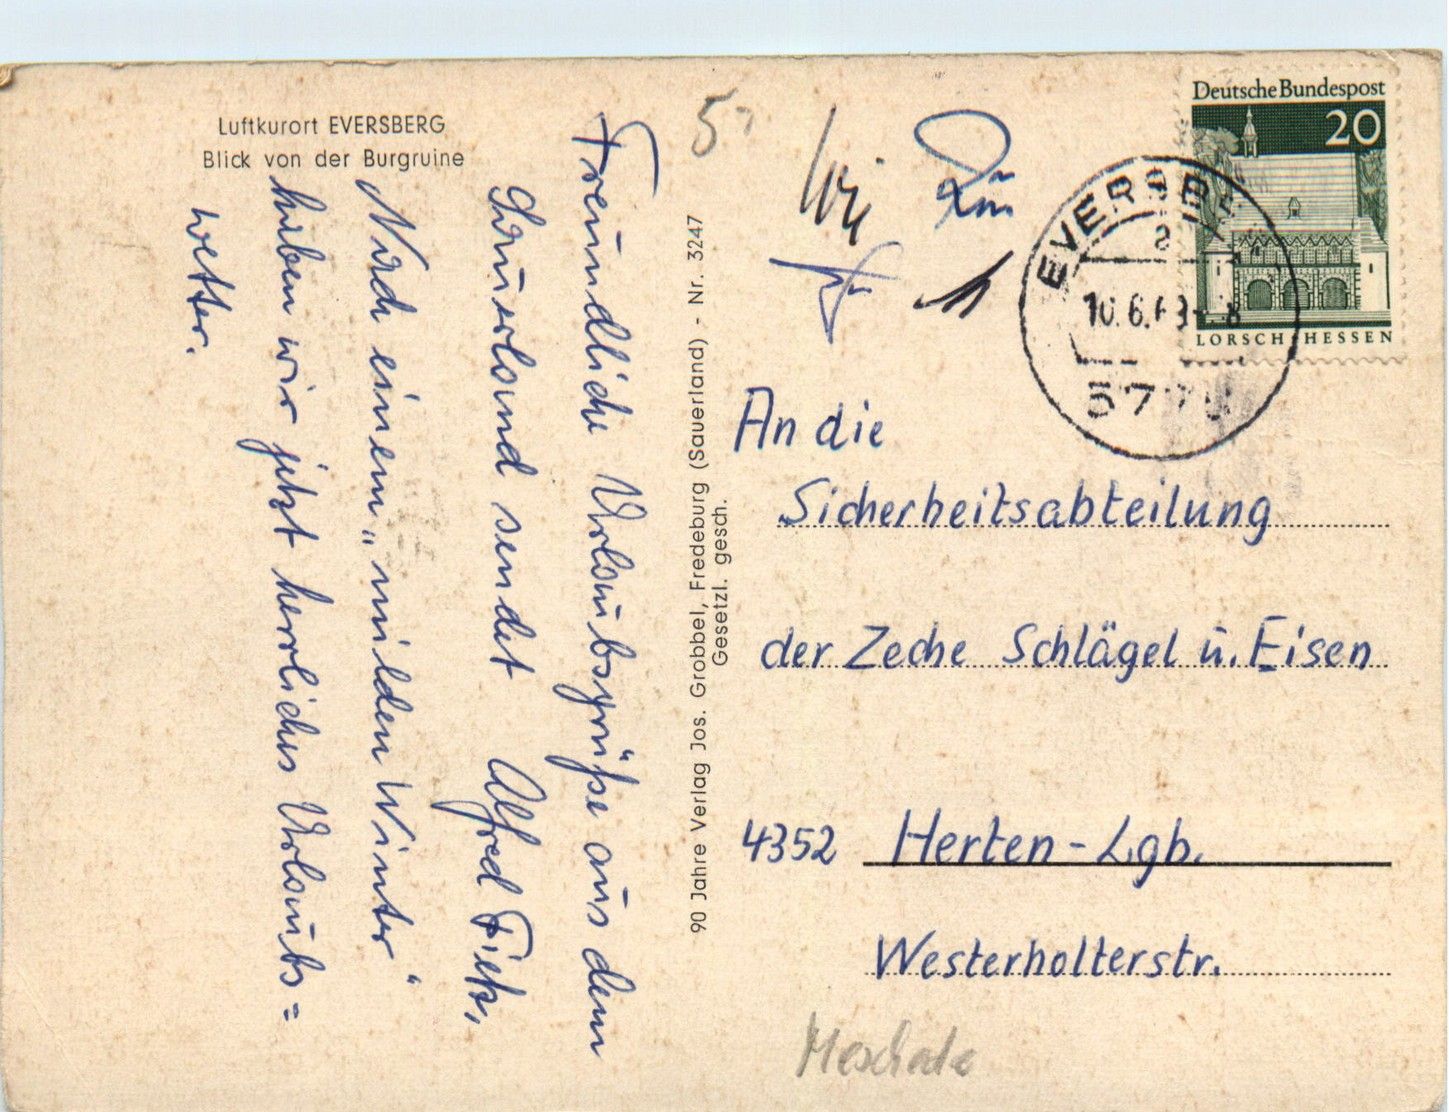 Luftkurort EVERSBERG
Blick von der Burgruine
Freundliche Urlaubsgrüße aus dem
Sauerland sendet Alfred Fietz,
Nach einem "milden Winter"
haben wir jetzt herrliches Urlaubs=
wetter.
90 Jahre Verlag Jos. Grobbel, Fredeburg (Sauerland) - Nr. 3247
Gesetzl. gesch.
5,
Deutsche Bundespost
20
LORSCH·HESSEN
EVERSBERG
a
10.6.69-8
577
An die
Sicherheitsabteilung
der Zeche Schlägel u. Eisen
4352 Herten-Lgb.
Westerholterstr.